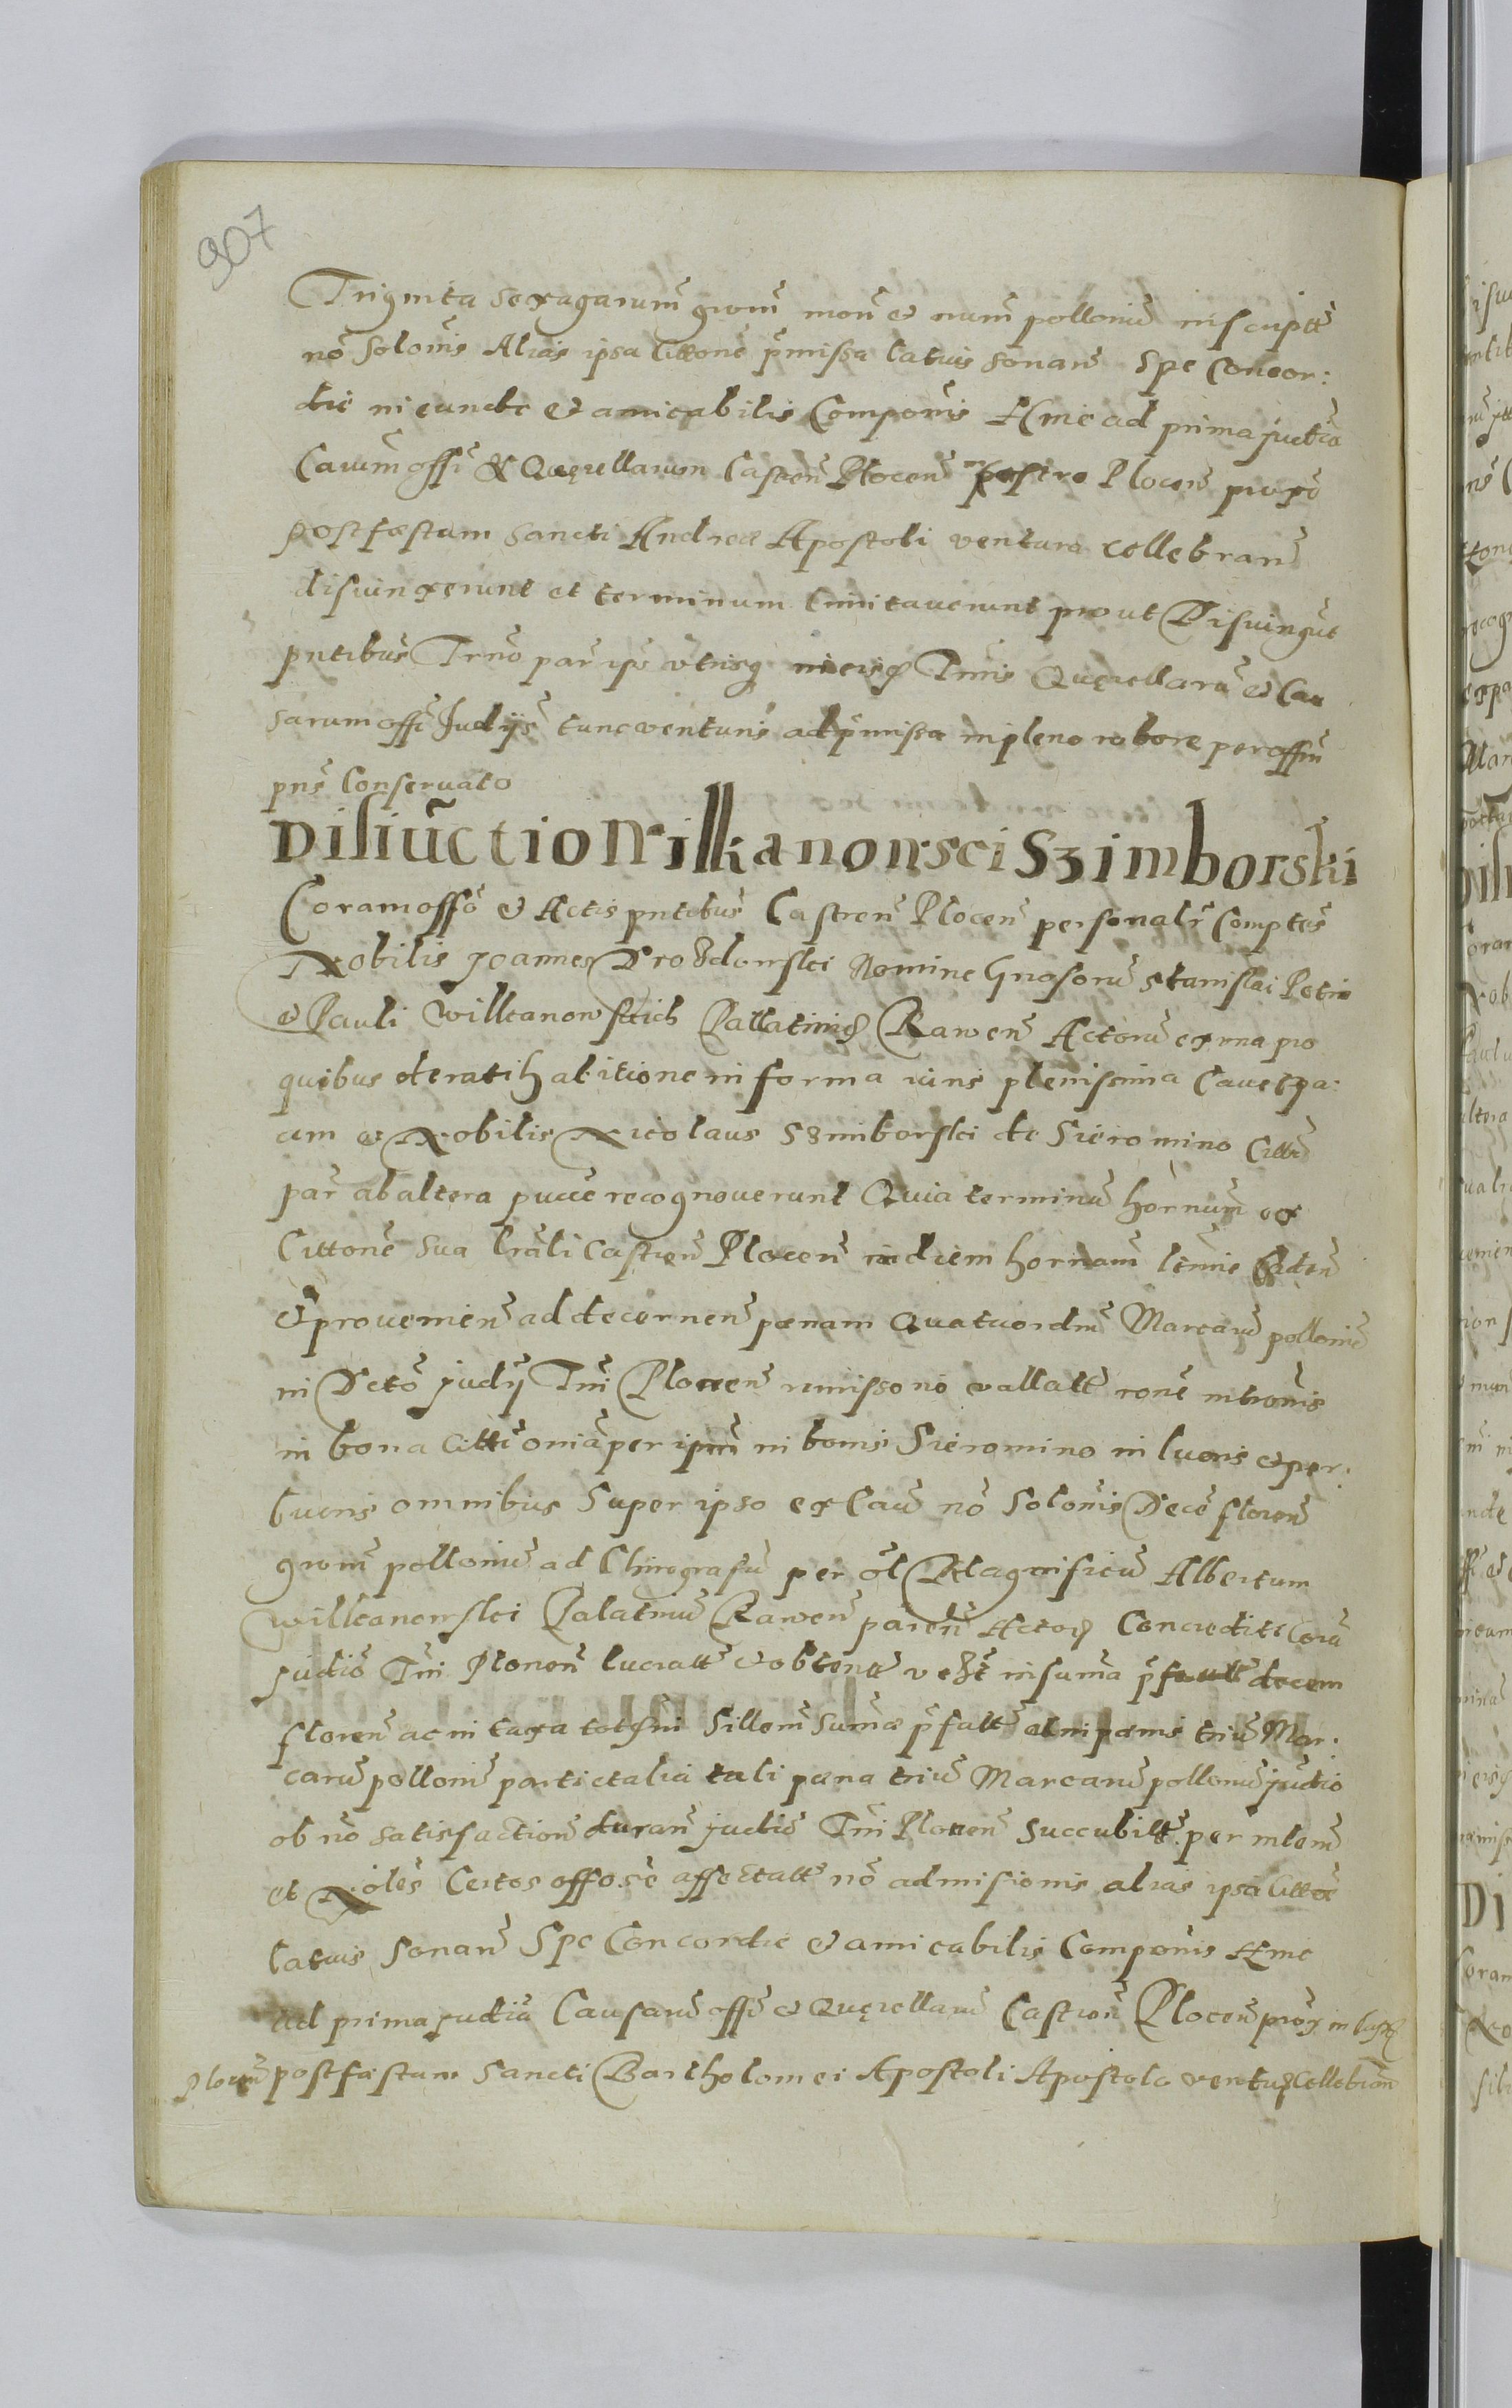 907
Triginta sexagarum grom mon et num pollonic inscript
no solonis Alias ipsa cittone pmissa latius sonan spe concor:
die ineunde et amicabilis Componis Hinc ad prima judicia
Carum offi et Querellarum Castren Plocen Castro Plocen proxo
post fæstum Sancti Andreæ Apostoli ventura cellebran
disiunxerunt et terminum limitauerunt prout Disiungut
pntibus Trno par ips vtrisq in eisq Trnis Querellaru et Cau
sarum offi Judijs tunc venturis ad pmissa in pleno robore per offm
pns Conseruato
Disiūctio Wilkanowsci Szimborski
Coram offo et Actis pntibus Castren Plocen personalr Comptes
Nobilis Joannes Drozdowski Nomine Gnosoru Stanislai Petri
et Pauli Wilkanowskich Pallatiniq Rawen Actoru ex una pro
quibus de ratihabitione in forma iuris plenissima Cauet pa:
cim et Nobilis Nicolaus Szimborski de Sieromino Citti
par ab altera pucce recognouerunt Quia terminu hornum ex
Cittone sua lrali Castren Plocen in diem hornam lenie Caden
et prouenien ad decernen pœnam Quatuordm Marcaru pollonic
in Decto judij Trni Plocen remisso no vallatt rone intronis
in bona citti omia per ipm in bonis Sieromino in lucris et per
lucris omnibus super ipso ex Cau no solonis Dece floren
grom pollonic ad Chirografu per ol Magnificu Albertum
Wilkanowski Palatinu Rawen paren Actoq Concredite Cora
judio Trni Plonen lucratt et obtentt vezt in suma pfatt decem
floren ac in taxa totsm Sillem sumæ pfatt et in pœnis triu Mar:
caru pollonic parti et alia tali pœna triu Marcaru pollonic judio
ob no satisfaction duran judio Trni Plonen Succubitt per intem
et Noles Certos offose affectatt no admisionis alias ipsa citto
latius sonan Spe Concordie et amicabilis Componis Hinc
ad prima judia Causaru offi et Querellaru Castren Plocen prox in Castr
Plocen post fæstum Sancti Bartholomei Apostoli Apostolo ventuq Cellebran